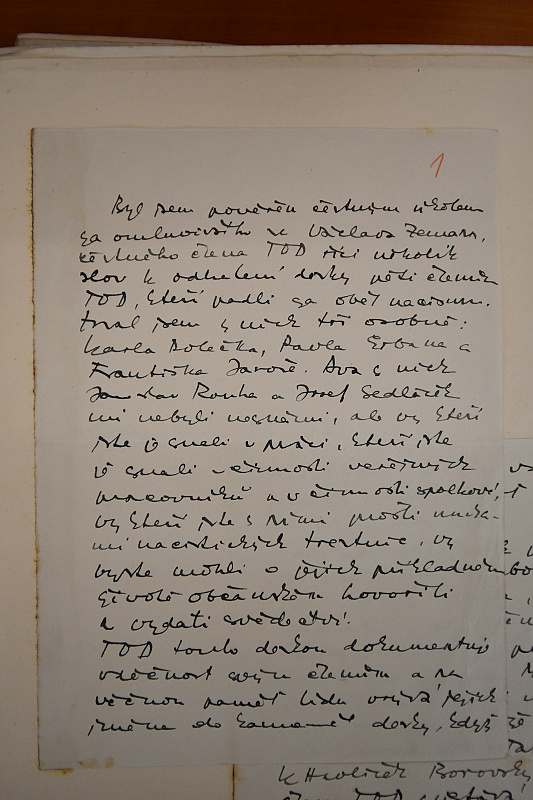 1
Byl jsem pověřen čestným úkolem
za omluvivšího se Václava Zemana,
čestného člena TOD říci několik
slov k odhalení desky pěti členům
TOD, kteří padli za oběť nacismu.
Znal jsem z nich tři osobně:
Karla Bolečka, Pavla Erbana a
Františka Jaroše. Dva z nich
Jaroslav Rouha a Josef Sedláček
mi nebyli neznámi, ale vy kteří
jste je znali v práci, kteří jste
je znali v činnosti veřejných
pracovníků a v činnosti spolkové,
vy kteří jste s nimi prošli muka-
mi nacistických trestnic, vy
byste mohli o jejich příkladném
životě občanském hovořiti
a vydati svědectví.
TOD touto deskou dokumentuje
vděčnost svým členům a na
věčnou paměť lidu vrývá jejich
jména do kamenné desky, když
K Havlíček Borovský